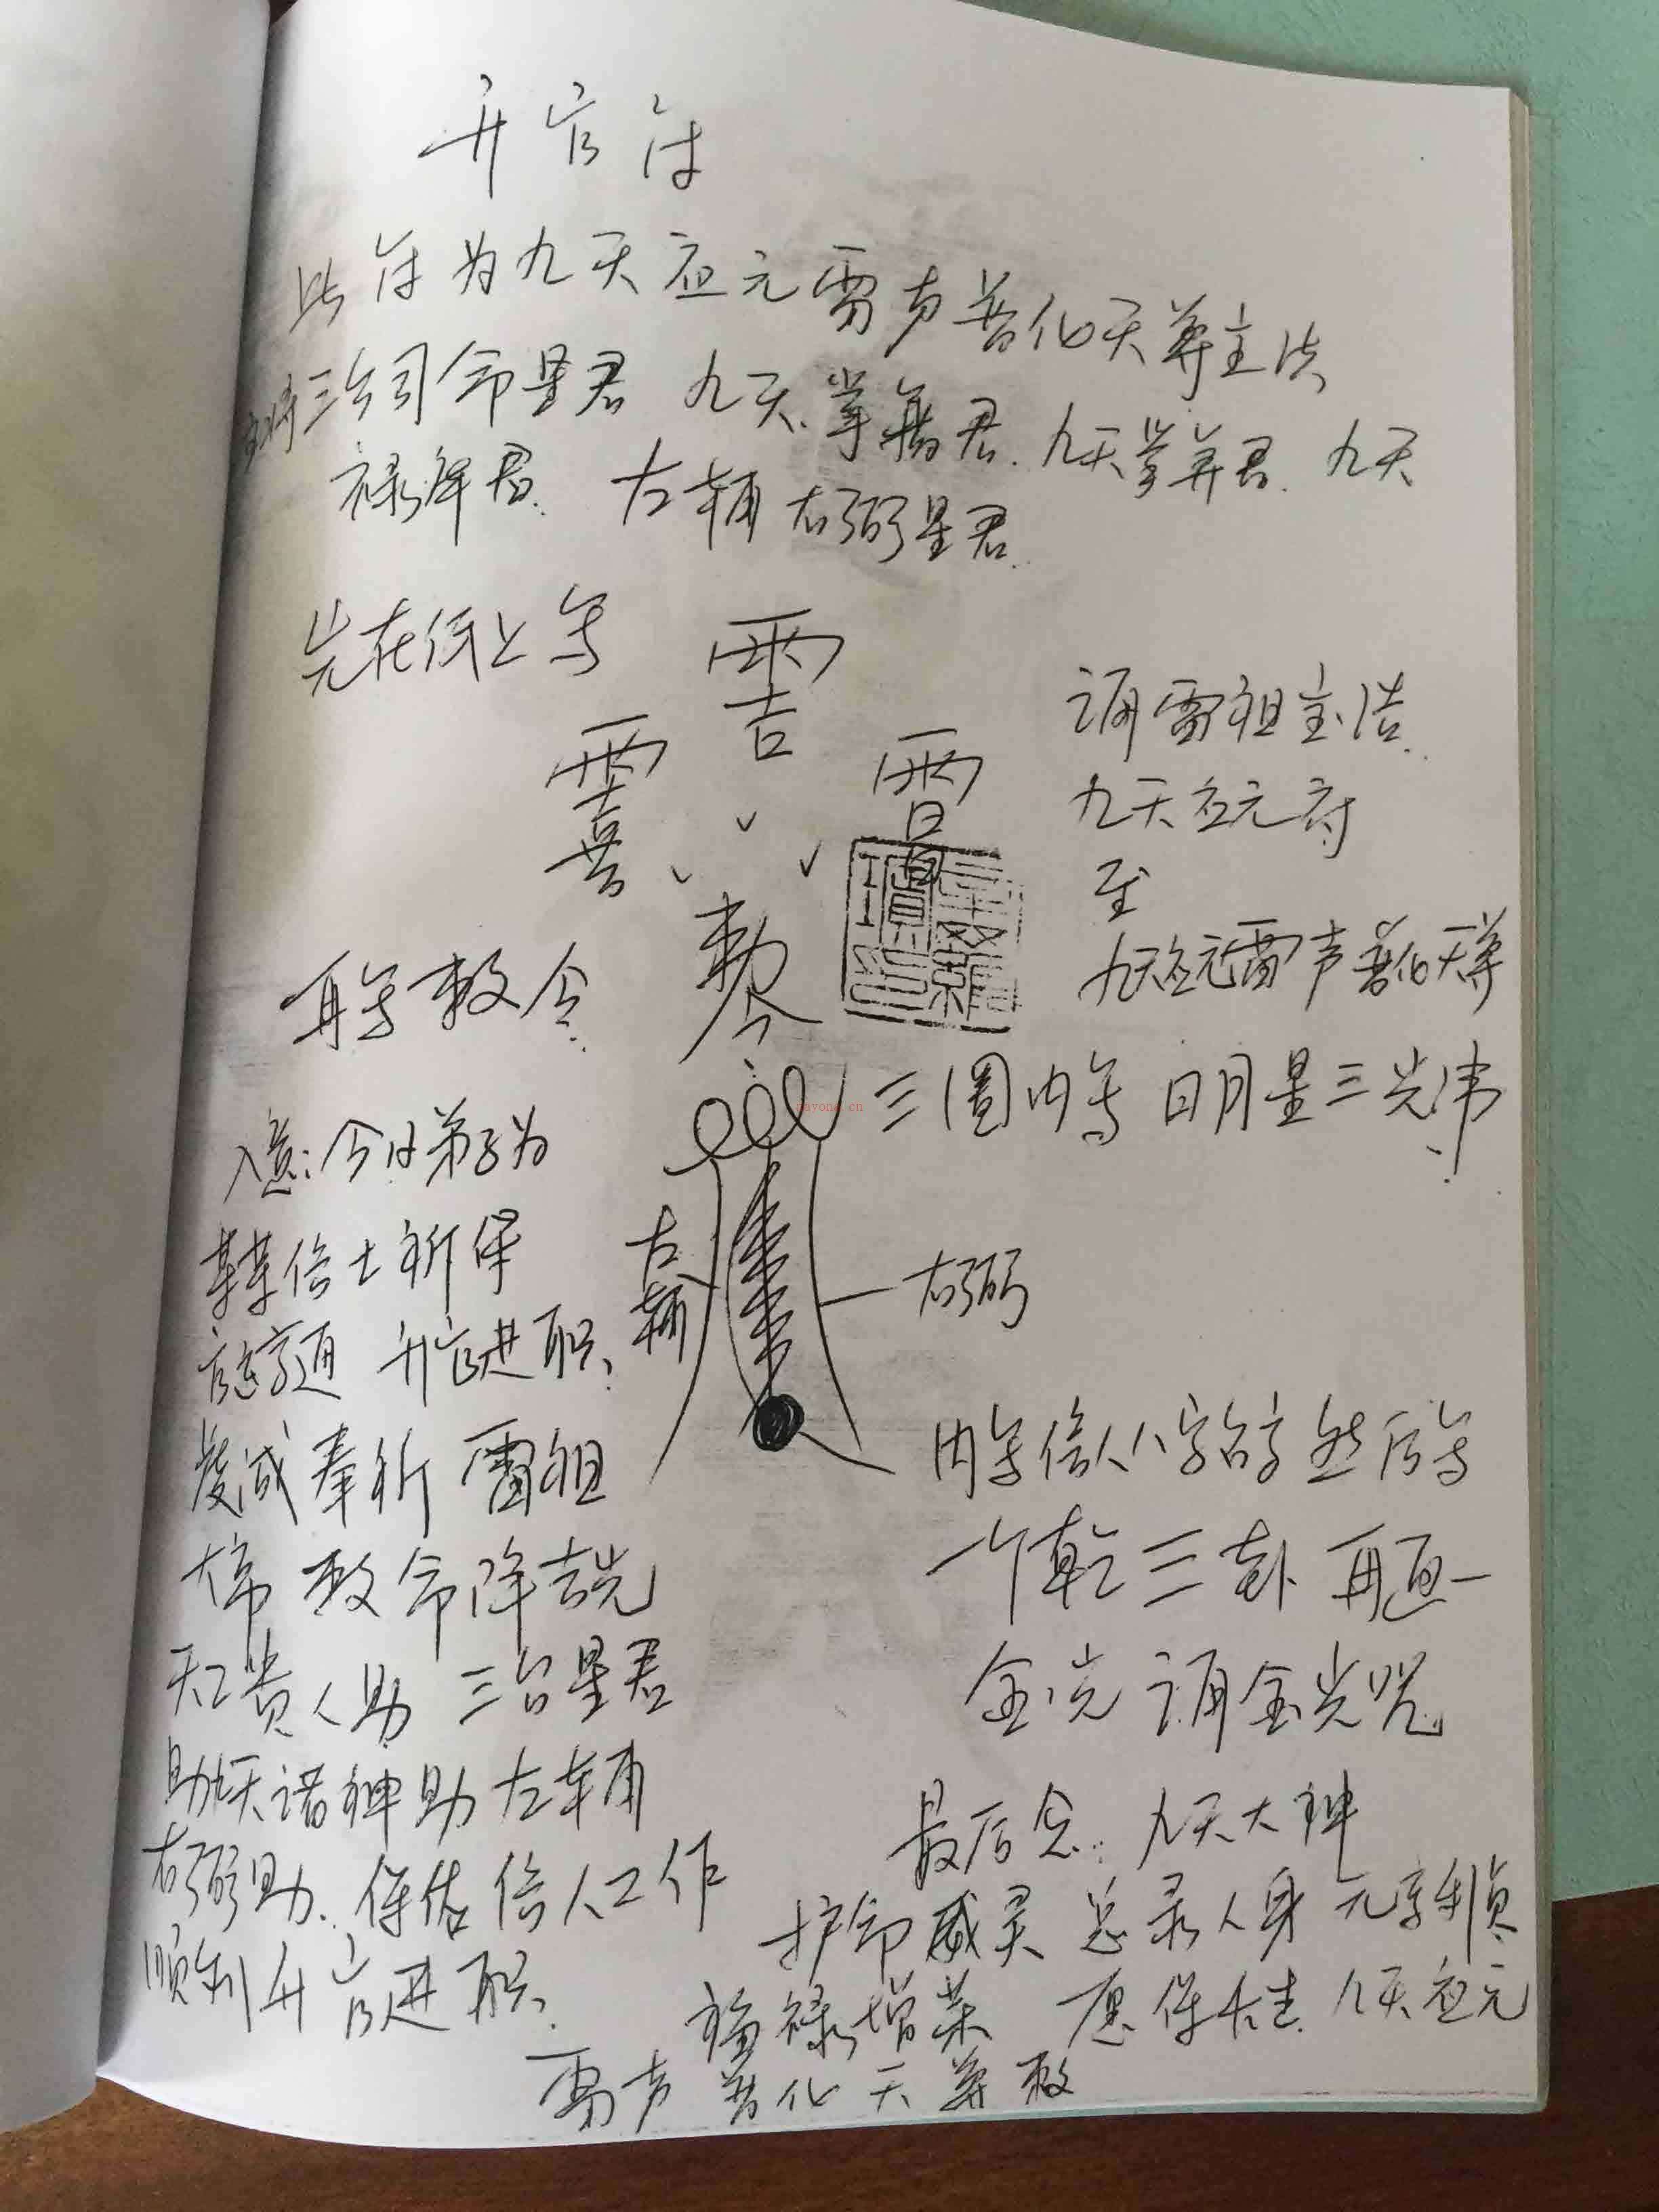 升官符
此符为九天应元雷声普化天尊主法
三台司命星君 九天掌籍君.九天掌算君.九天
禄库君. 左辅右弼星君.
先在纸上写
再写敕令.
敕令
入意:今日弟子为
某某信士祈保
官运亨通 升官进职、
虔诚奉祈 雷祖
大帝 敕命降吉光
天工贵人助 三台星君
助九天诸神助左辅
右弼助.保佑信人工作
顺利升官进职.
左辅
右弼
诵雷祖宝诰.
九天应元府
至
九天应元雷声普化天尊
三圈内写 日月星三光讳.
内写信人八字名字 然后写
一个乾三卦 再画一
金光 诵金光咒
最后念: 九天大神
护命威灵 总录人身 元亨利贞
福禄增荣 愿保长生.九天应元
雷声普化天尊敕